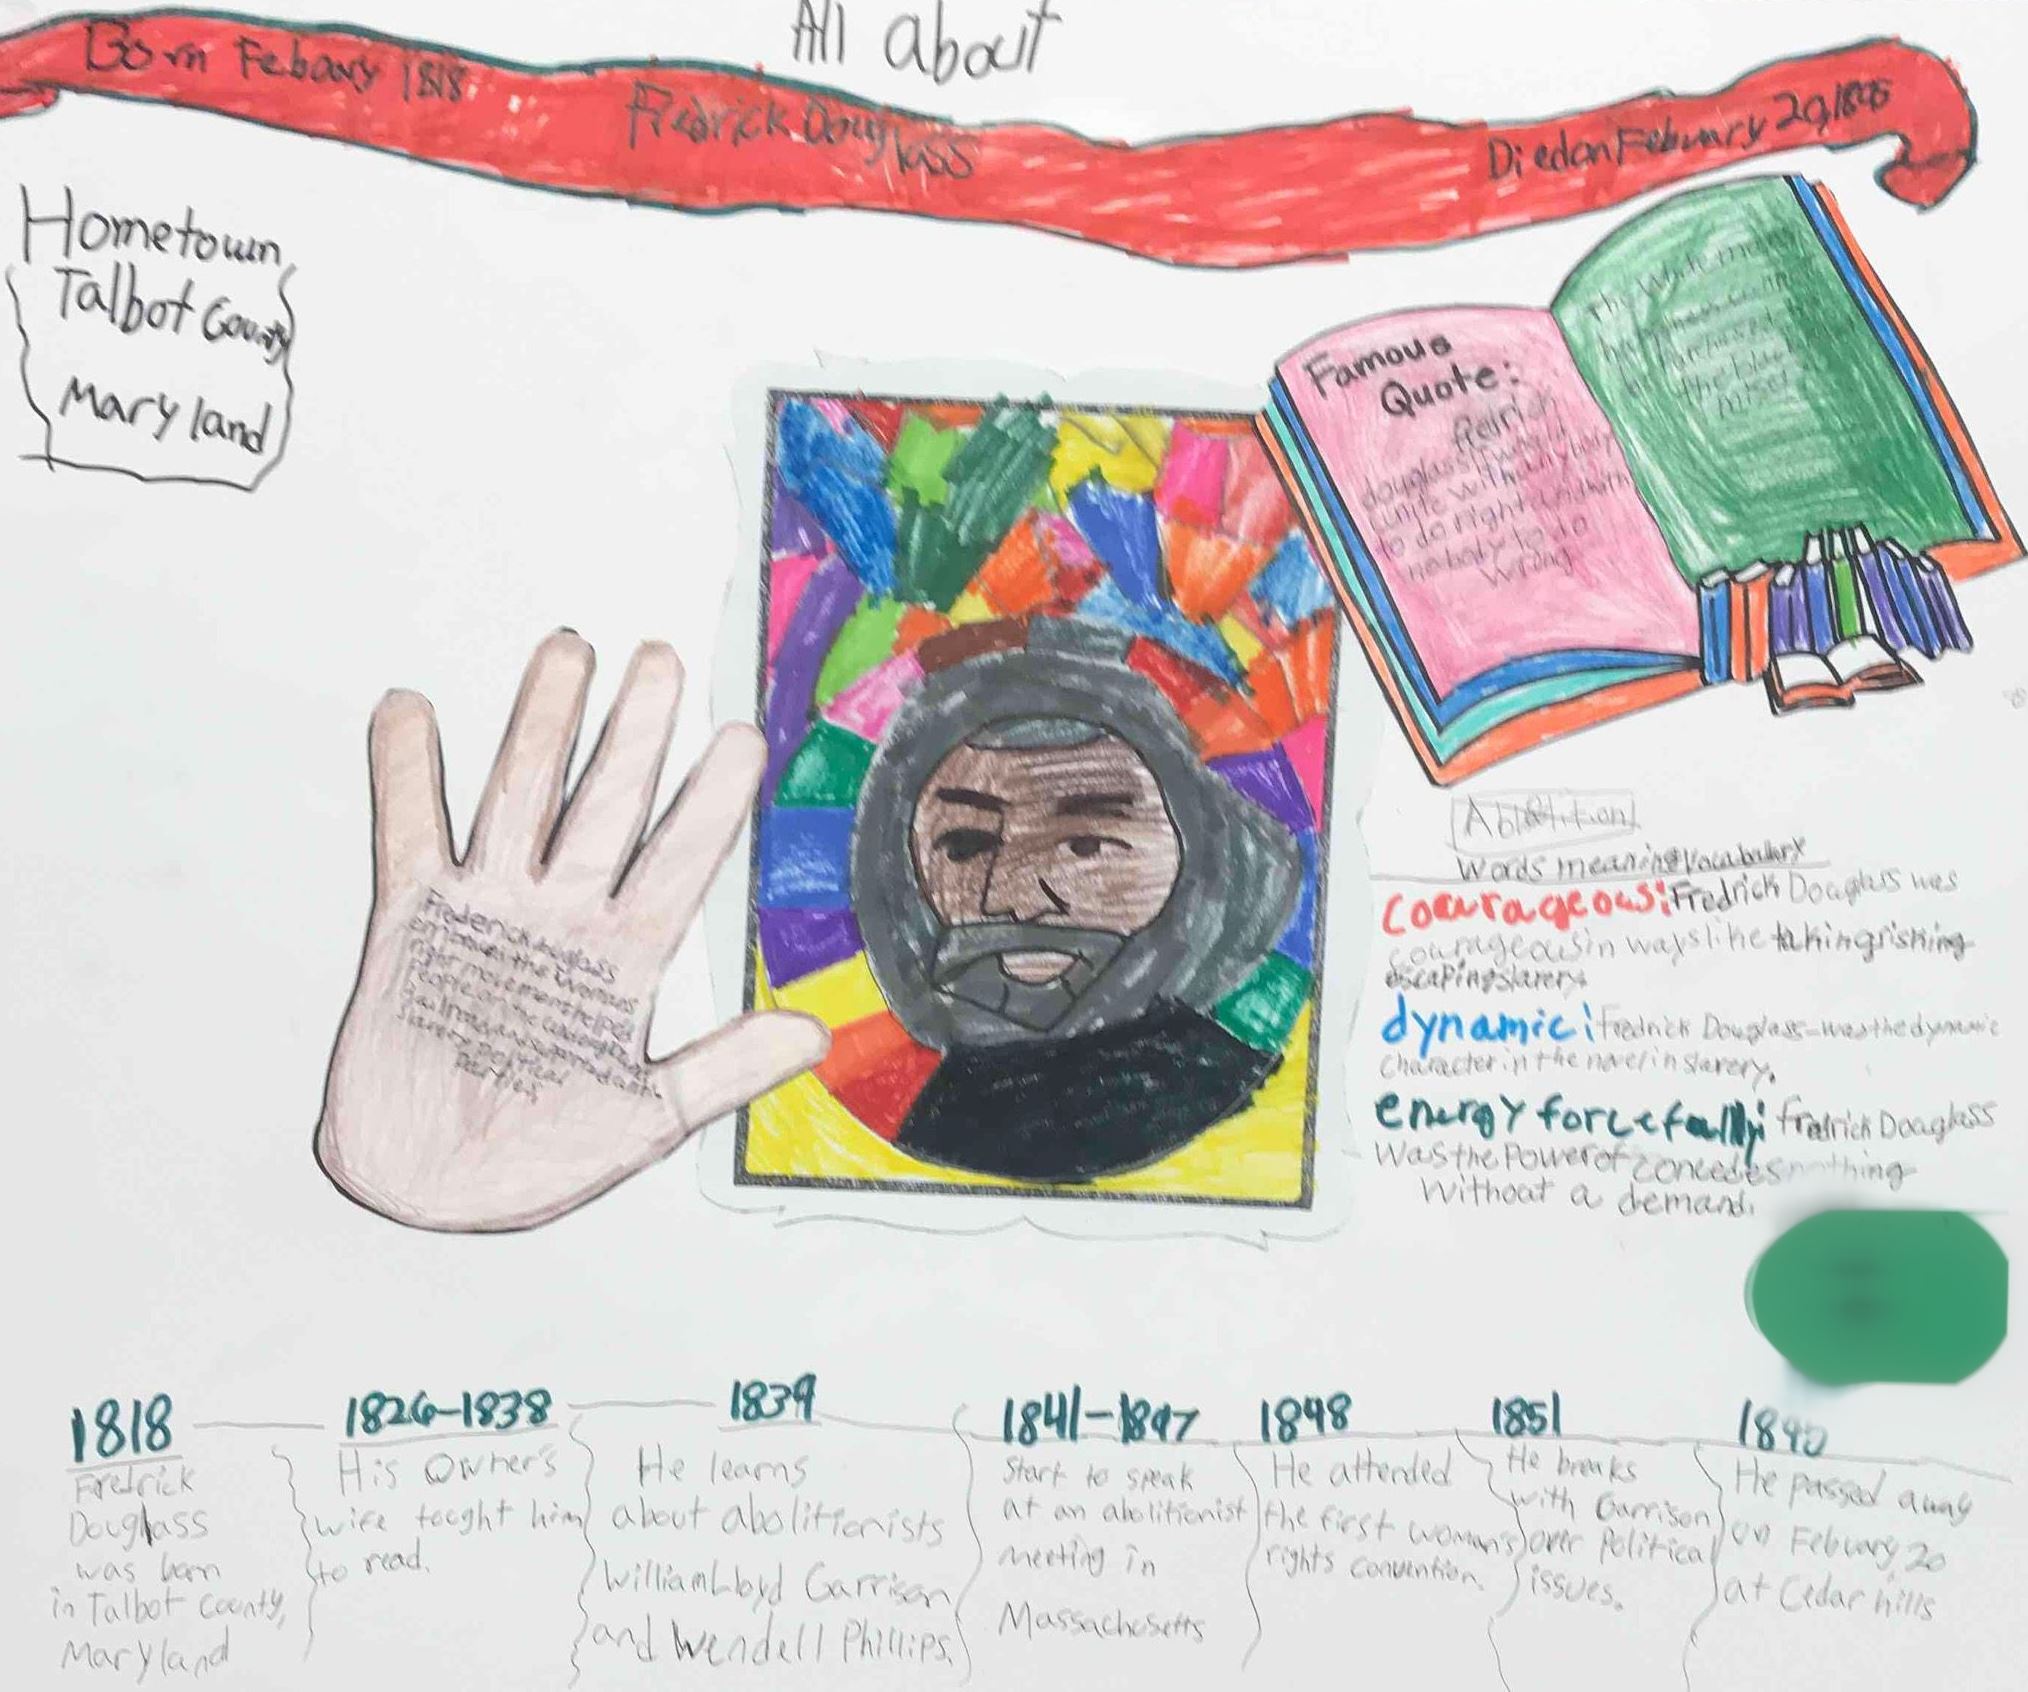 All about
Born Febuary 1818
Fredrick Douglass
Died on February 20, 1895
Hometown
Talbot County
Maryland
Famous
Quote:
douglass I would
unite with anybody
to do right and with
nobody to do
wrong
The White man's
happiness cannot
be purchased
by the black
Frederick douglass
the womens
right movement helped
people on the
railroad and
slavery political
parties
Abolition
Words meaning vocabulary
courageous: Fredrick Douglass was
courageous in ways like taking risking
escaping slavery.
dynamic: Fredrick Douglass was the dynamic
character in the novel in slavery.
energy forcefully: fredrick Douglass
Was the Power of concedes nothing
Without a demand.
1818
Fredrick
Douglass
was born
in Talbot County,
Maryland
1826-1838
His Owner's
wife tought him
to read.
1839
He learns
about abolitionists
William Lloyd Garrison
and Wendell Phillips.
1841-1847
Start to speak
at an abolitionist
meeting in
Massachusetts
1848
He attended
the first woman's
rights convention.
1851
He breaks
with Garrison
over Political
issues.
1895
He passed away
on Febuary, 20
at Cedar hills